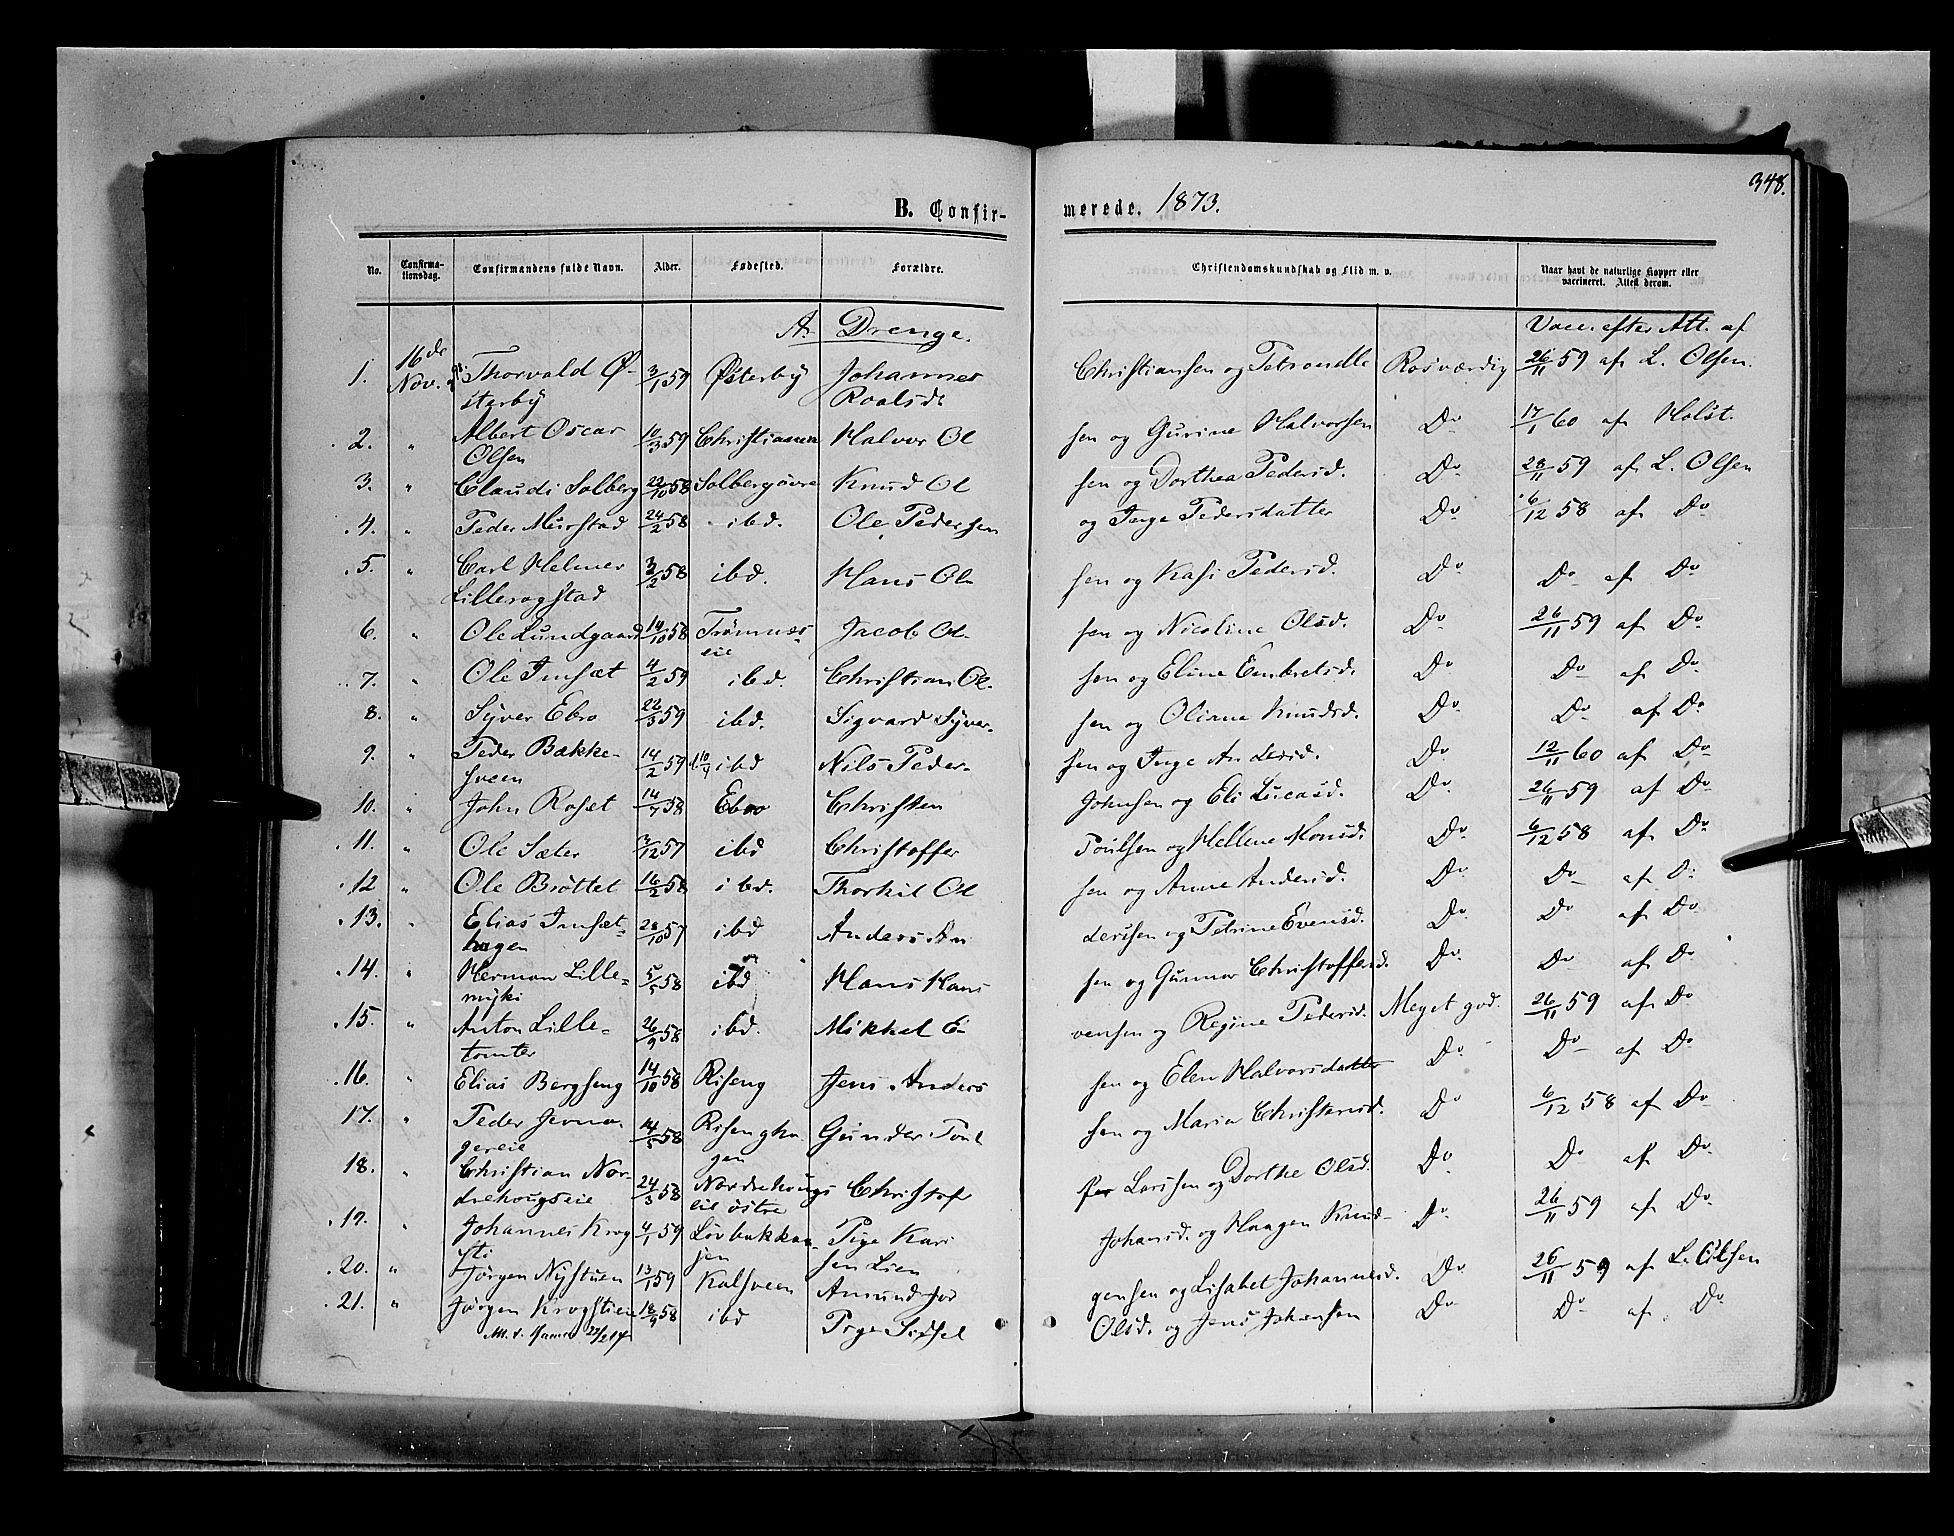 348.
B. Confirmerede. 1873.
No. Confirmationsdag. Confirmandens fulde Navn. Alder. Fødested. Forældre. Christendomskundskab og Flid m. v. Naar havt de naturlige Kopper eller vaccineret. Attest derom.
A. Drenge. Vacc. efter Att. af
1. 16de Nov. Thorvald Østerby 3/1 59 Østerby Johannes Roalsd. Christiansen og Petronelle Rosværdig 26/11 59 af L. Olsen.
2. " Albert Oscar Olsen 10/3 59 Halvor Ol sen og Gurine Halvorsen Do 17/1 60 af Holst.
3. " Claudi Solberg 22/10 58 Solbergøvre Knud Ol sen og Dorthea Pedersd. Do 28/11 59 af L. Olsen
4. " Peder Mørstad 24/2 58 ibd. Ole Pedersen og Inge Pedersdatter Do 6/12 58 af Do
5. " Carl Helmer Lillerogstad 3/2 58 ibd. Hans Ol- sen og Kasi Pedersd. Do Do af Do
6. " Ole Lundgaard 14/10 58 Trømnæseie Jacob Ol- sen og Nicoline Olsd. Do 26/11 59 af Do
7. " Ole Imset 4/2 59 ibd. Christian Ol- sen og Eline Embretsd. Do Do af Do
8. " Syver Ebro 22/3 59 ibd. Sigvard Syver- sen og Oliane Knudsd. Do Do af Do
9. " Peder Bækkesveen 14/2 59 ibd Nils Peder- sen og Inge Andersd. Do 12/11 60 af Do
10. " John Roset 14/7 58 Ebro Christen Johnsen og Eli Lucasd. Do 26/11 59 af Do
11. " Ole Sæter 3/12 57 ibd Christoffer Poulsen og Hellene Monsd. Do 6/12 58 af Do
12 " Ole Brøttet 16/2 58 ibd. Thorkil Ol sen og Anne Andersd. Do Do af Do
13. " Elias Imsæthagen 28/10 57 ibd Anders An dersen og Petrine Evensd. Do Do af Do
14. " Herman Lillemyki 5/5 58 ibd Hans Hans sen og Gunnor Christoffersd. Do Do af Do
15. " Anton Lilletomter 26/9 58 ibd. Mikkel E- vensen og Regine Pedersd. Meget god. 26/11 59 af Do
16. " Elias Bergseng 14/10 58 Riseng Jens Anders sen og Elen Halvorsdatter Do Do af Do
17. " Peder 14/5 58 Risenghagen Gunder Poul sen og Maria Christensd. Do 6/12 58 af Do
18. " Christian Nordrehougseie 24/3 58 Nordrehougseie østre Christof fer Larssen og Dorthe Olsd. Do Do af Do
19. " Johannes Krogsti 4/1 59 Løvbakkan- Pige Kari Johansd. og Haagen Knud- sen Lien Do 26/11 59 af Do
20. " Jørgen Nystuen 13/1 59 Kalsveen Amund Jør gensen og Lisabet Johannesd. Do 26/11 59 af L. Olsen
21. " Jørgen Krogstieie 18/9 58 ibd Pige Sissel Olsd. og Jens Johansen Do Do af Do